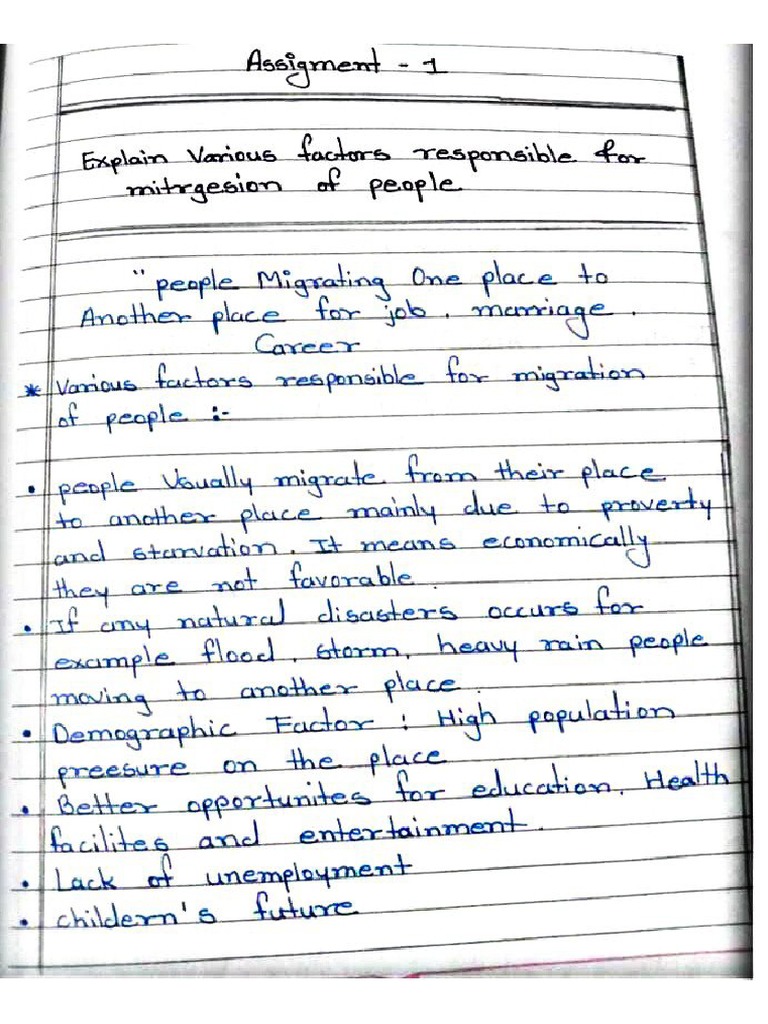 Assigment - 1
Explain Various factors responsible for
mitrgesion of people
"people Migrating One place to
Another place for job, marriage.
Career
* Various factors responsible for migration
of people :-
• people Usually migrate from their place
to another place mainly due to proverty
and starvation. It means economically
they are not favorable.
• If any natural disasters occurs for
example flood, storm, heavy rain people
moving to another place.
• Demographic Factor : High population
preesure on the place
• Better opportunites for education, Health
facilites and entertainment.
• Lack of unemployment
• childern's future